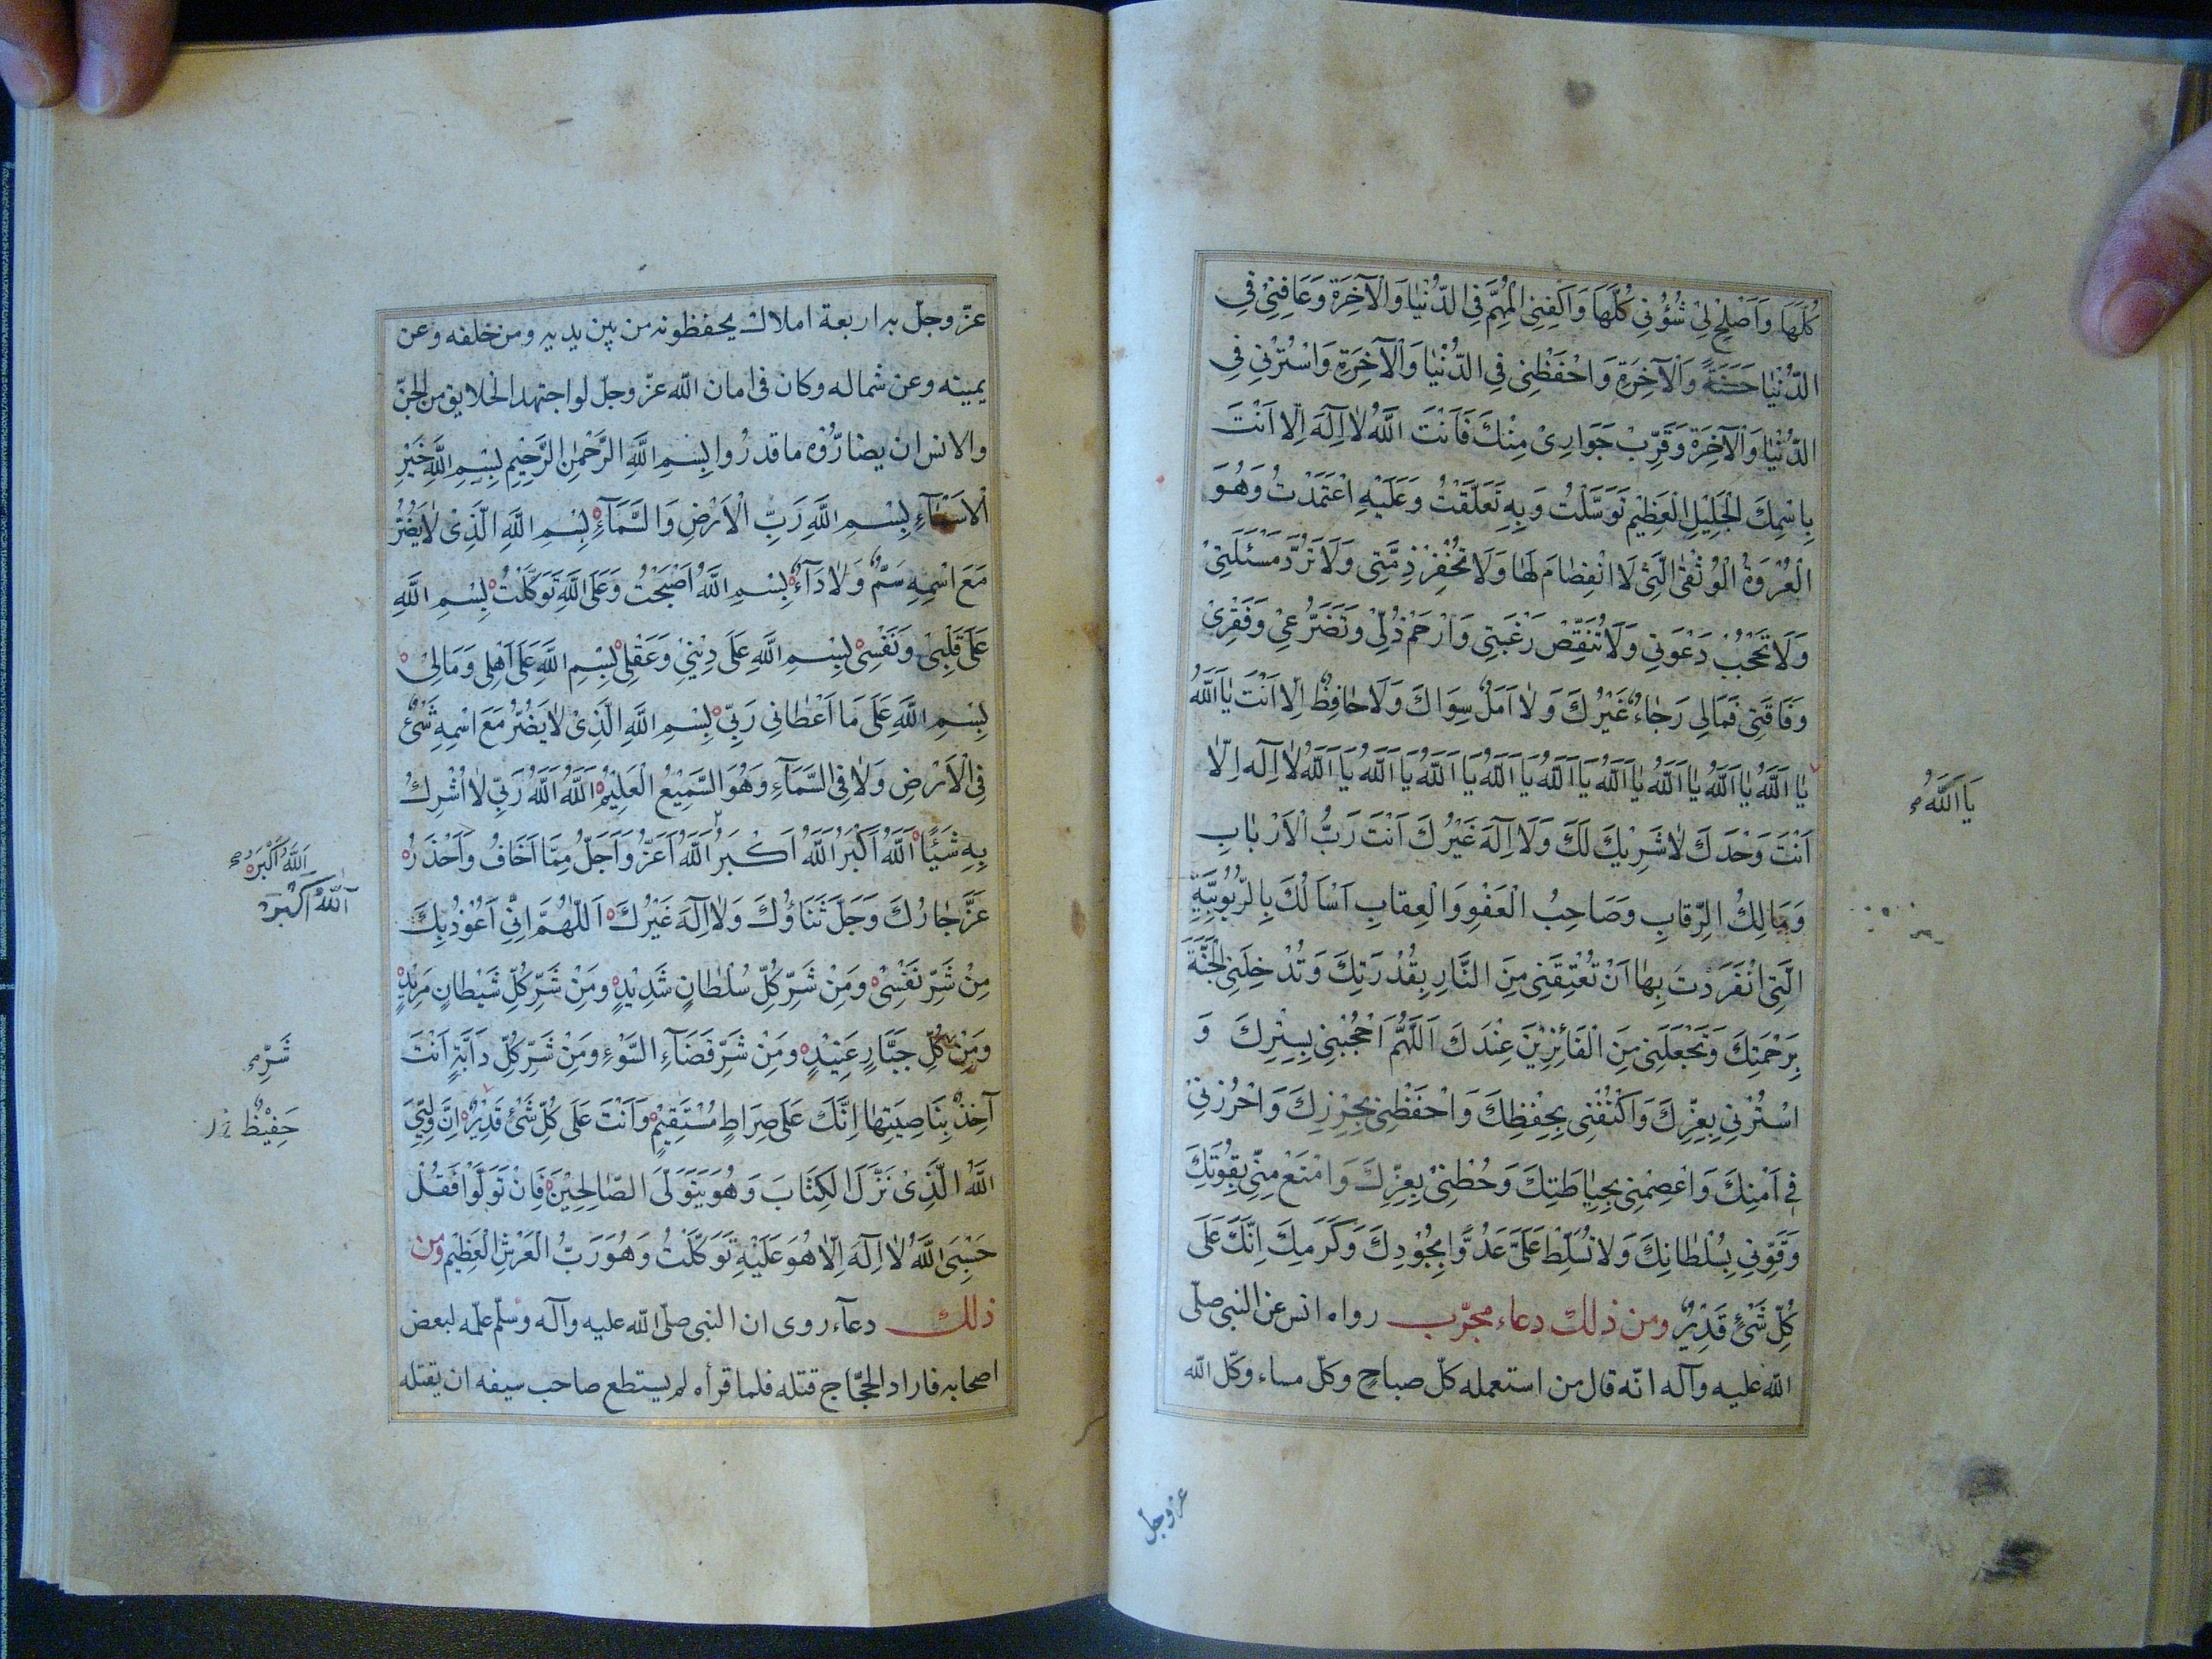 كُلَّهَا وَاَصْلِحْ لِیْ شُؤُنِی كُلَّهَا وَاكْفِنِی الْمُهِمَّ فِی الدُّنْیَا وَالْآخِرَةِ وَعَافِنِیْ فِی
الدُّنْیَا حَسَنَةً وَالْآخِرَةِ وَاحْفَظْنِی فِی الدُّنْیَا وَالْآخِرَةِ وَاسْتُرْنِی فِی
الدُّنْیَا وَالْآخِرَةِ وَقَرِّبْ جَوَارِیْ مِنْكَ فَاَنْتَ اللّٰهُ لَا اِلٰهَ اِلَّا اَنْتَ
بِاسْمِكَ الْجَلِیْلِ الْعَظِیْمِ تَوَسَّلْتُ وَبِهِ تَعَلَّقْتُ وَعَلَیْهِ اعْتَمَدْتُ وَهُوَ
الْعُرْوَةُ الْوُثْقٰی الَّتِیْ لَا انْفِصَامَ لَهَا وَلَا تُخْفِرْ ذِمَّتِی وَلَا تَرُدَّ مَسْئَلَتِیْ
وَلَا تَحْجُبْ دَعْوَتِی وَلَا تُنَقِّصْ رَغْبَتِی وَارْحَمْ ذُلِّیْ وَتَضَرُّعِیْ وَفَقْرِیْ
وَفَاقَتِی فَمَالِی رَجَاءٌ غَیْرُكَ وَلَا اَمَلٌ سِوَاكَ وَلَا حَافِظٌ اِلَّا اَنْتَ یَا اَللّٰهُ
یَا اَللّٰهُ یَا اَللّٰهُ یَا اَللّٰهُ یَا اَللّٰهُ یَا اَللّٰهُ یَا اَللّٰهُ یَا اَللّٰهُ یَا اَللّٰهُ لَا اِلٰهَ اِلَّا
یَا اَللّٰهُ
اَنْتَ وَحْدَكَ لَا شَرِیْكَ لَكَ وَلَا اِلٰهَ غَیْرُكَ اَنْتَ رَبُّ الْاَرْبَابِ
وَمَالِكُ الرِّقَابِ وَصَاحِبُ الْعَفْوِ وَالْعِقَابِ اَسْاَلُكَ بِالرُّبُوْبِیَّةِ
الَّتِی انْفَرَدْتَ بِهَا اَنْ تُعْتِقَنِی مِنَ النَّارِ بِقُدْرَتِكَ وَتُدْخِلَنِی الْجَنَّةَ
بِرَحْمَتِكَ وَتَجْعَلَنِی مِنَ الْفَائِزِیْنَ عِنْدَكَ اَللّٰهُمَّ احْجُبْنِی بِسِتْرِكَ وَ
اسْتُرْنِی بِعِزِّكَ وَاكْنُفْنِی بِحِفْظِكَ وَاحْفَظْنِی بِحِرْزِكَ وَاحْرُزْنِیْ
فِی اَمْنِكَ وَاعْصِمْنِی بِحِیَاطَتِكَ وَحُطْنِیْ بِعِزِّكَ وَامْنَعْ مِنِّی بِقُوَّتِكَ
وَقَوِّنِی بِسُلْطَانِكَ وَلَا تُسَلِّطْ عَلَیَّ عَدُوًّا بِجُوْدِكَ وَكَرَمِكَ اِنَّكَ عَلٰی
كُلِّ شَیْءٍ قَدِیْرٌ ومن ذلك دعاء مجرّب رواه انس عن النبی صلّی
اللّٰه علیه وآله انّه قال من استعمله كلّ صباح وكلّ مساء وكّل اللّٰه
عزوجل
عزّ وجلّ به اربعة املاك یحفظونه من بین یدیه ومن خلفه وعن
یمینه وعن شماله وكان فی امان اللّٰه عزّ وجلّ لو اجتهد الخلایق من الجنّ
والانس ان یضارّوه ما قدروا بِسْمِ اللّٰهِ الرَّحْمٰنِ الرَّحِیْمِ بِسْمِ اللّٰهِ خَیْرِ
الْاَسْمَآءِ بِسْمِ اللّٰهِ رَبِّ الْاَرْضِ وَالسَّمَآءِ بِسْمِ اللّٰهِ الَّذِیْ لَا یَضُرُّ
مَعَ اسْمِهِ سَمٌّ وَلَا دَآءٌ بِسْمِ اللّٰهِ اَصْبَحْتُ وَعَلَی اللّٰهِ تَوَكَّلْتُ بِسْمِ اللّٰهِ
عَلٰی قَلْبِیْ وَنَفْسِیْ بِسْمِ اللّٰهِ عَلٰی دِیْنِیْ وَعَقْلِیْ بِسْمِ اللّٰهِ عَلٰی اَهْلِی وَمَالِیْ
بِسْمِ اللّٰهِ عَلٰی مَا اَعْطَانِی رَبِّیْ بِسْمِ اللّٰهِ الَّذِیْ لَا یَضُرُّ مَعَ اسْمِهِ شَیْءٌ
فِی الْاَرْضِ وَلَا فِی السَّمَآءِ وَهُوَ السَّمِیْعُ الْعَلِیْمُ اَللّٰهُ اَللّٰهُ رَبِّی لَا اُشْرِكُ
بِهِ شَیْئًا اَللّٰهُ اَكْبَرُ اَللّٰهُ اَكْبَرُ اَللّٰهُ اَعَزُّ وَاَجَلُّ مِمَّا اَخَافُ وَاَحْذَرُ
اَللّٰهُ اَكْبَرُ
اَللّٰهُ اَكْبَرُ
عَزَّ جَارُكَ وَجَلَّ ثَنَاؤُكَ وَلَا اِلٰهَ غَیْرُكَ اَللّٰهُمَّ اِنِّی اَعُوْذُ بِكَ
مِنْ شَرِّ نَفْسِیْ وَمِنْ شَرِّ كُلِّ سُلْطَانٍ شَدِیْدٍ وَمِنْ شَرِّ كُلِّ شَیْطَانٍ مَرِیْدٍ
وَمِنْ كُلِّ جَبَّارٍ عَنِیْدٍ وَمِنْ شَرِّ قَضَآءِ السُّوْءِ وَمِنْ شَرِّ كُلِّ دَآبَّةٍ اَنْتَ
شَرِّ
آخِذٌ بِنَاصِیَتِهَا اِنَّكَ عَلٰی صِرَاطٍ مُسْتَقِیْمٍ وَاَنْتَ عَلٰی كُلِّ شَیْءٍ قَدِیْرٌ اِنَّ وَلِیِّیَ
حَفِیْظٌ
اللّٰهُ الَّذِیْ نَزَّلَ الْكِتَابَ وَهُوَ یَتَوَلَّی الصَّالِحِیْنَ فَاِنْ تَوَلَّوْا فَقُلْ
حَسْبِیَ اللّٰهُ لَا اِلٰهَ اِلَّا هُوَ عَلَیْهِ تَوَكَّلْتُ وَهُوَ رَبُّ الْعَرْشِ الْعَظِیْمِ ومن
ذلك دعآء روی ان النبی صلّی اللّٰه علیه وآله وسلّم علّمه لبعض
اصحابه فاراد الحجّاج قتله فلما قرأه لم یستطع صاحب سیفه ان یقتله